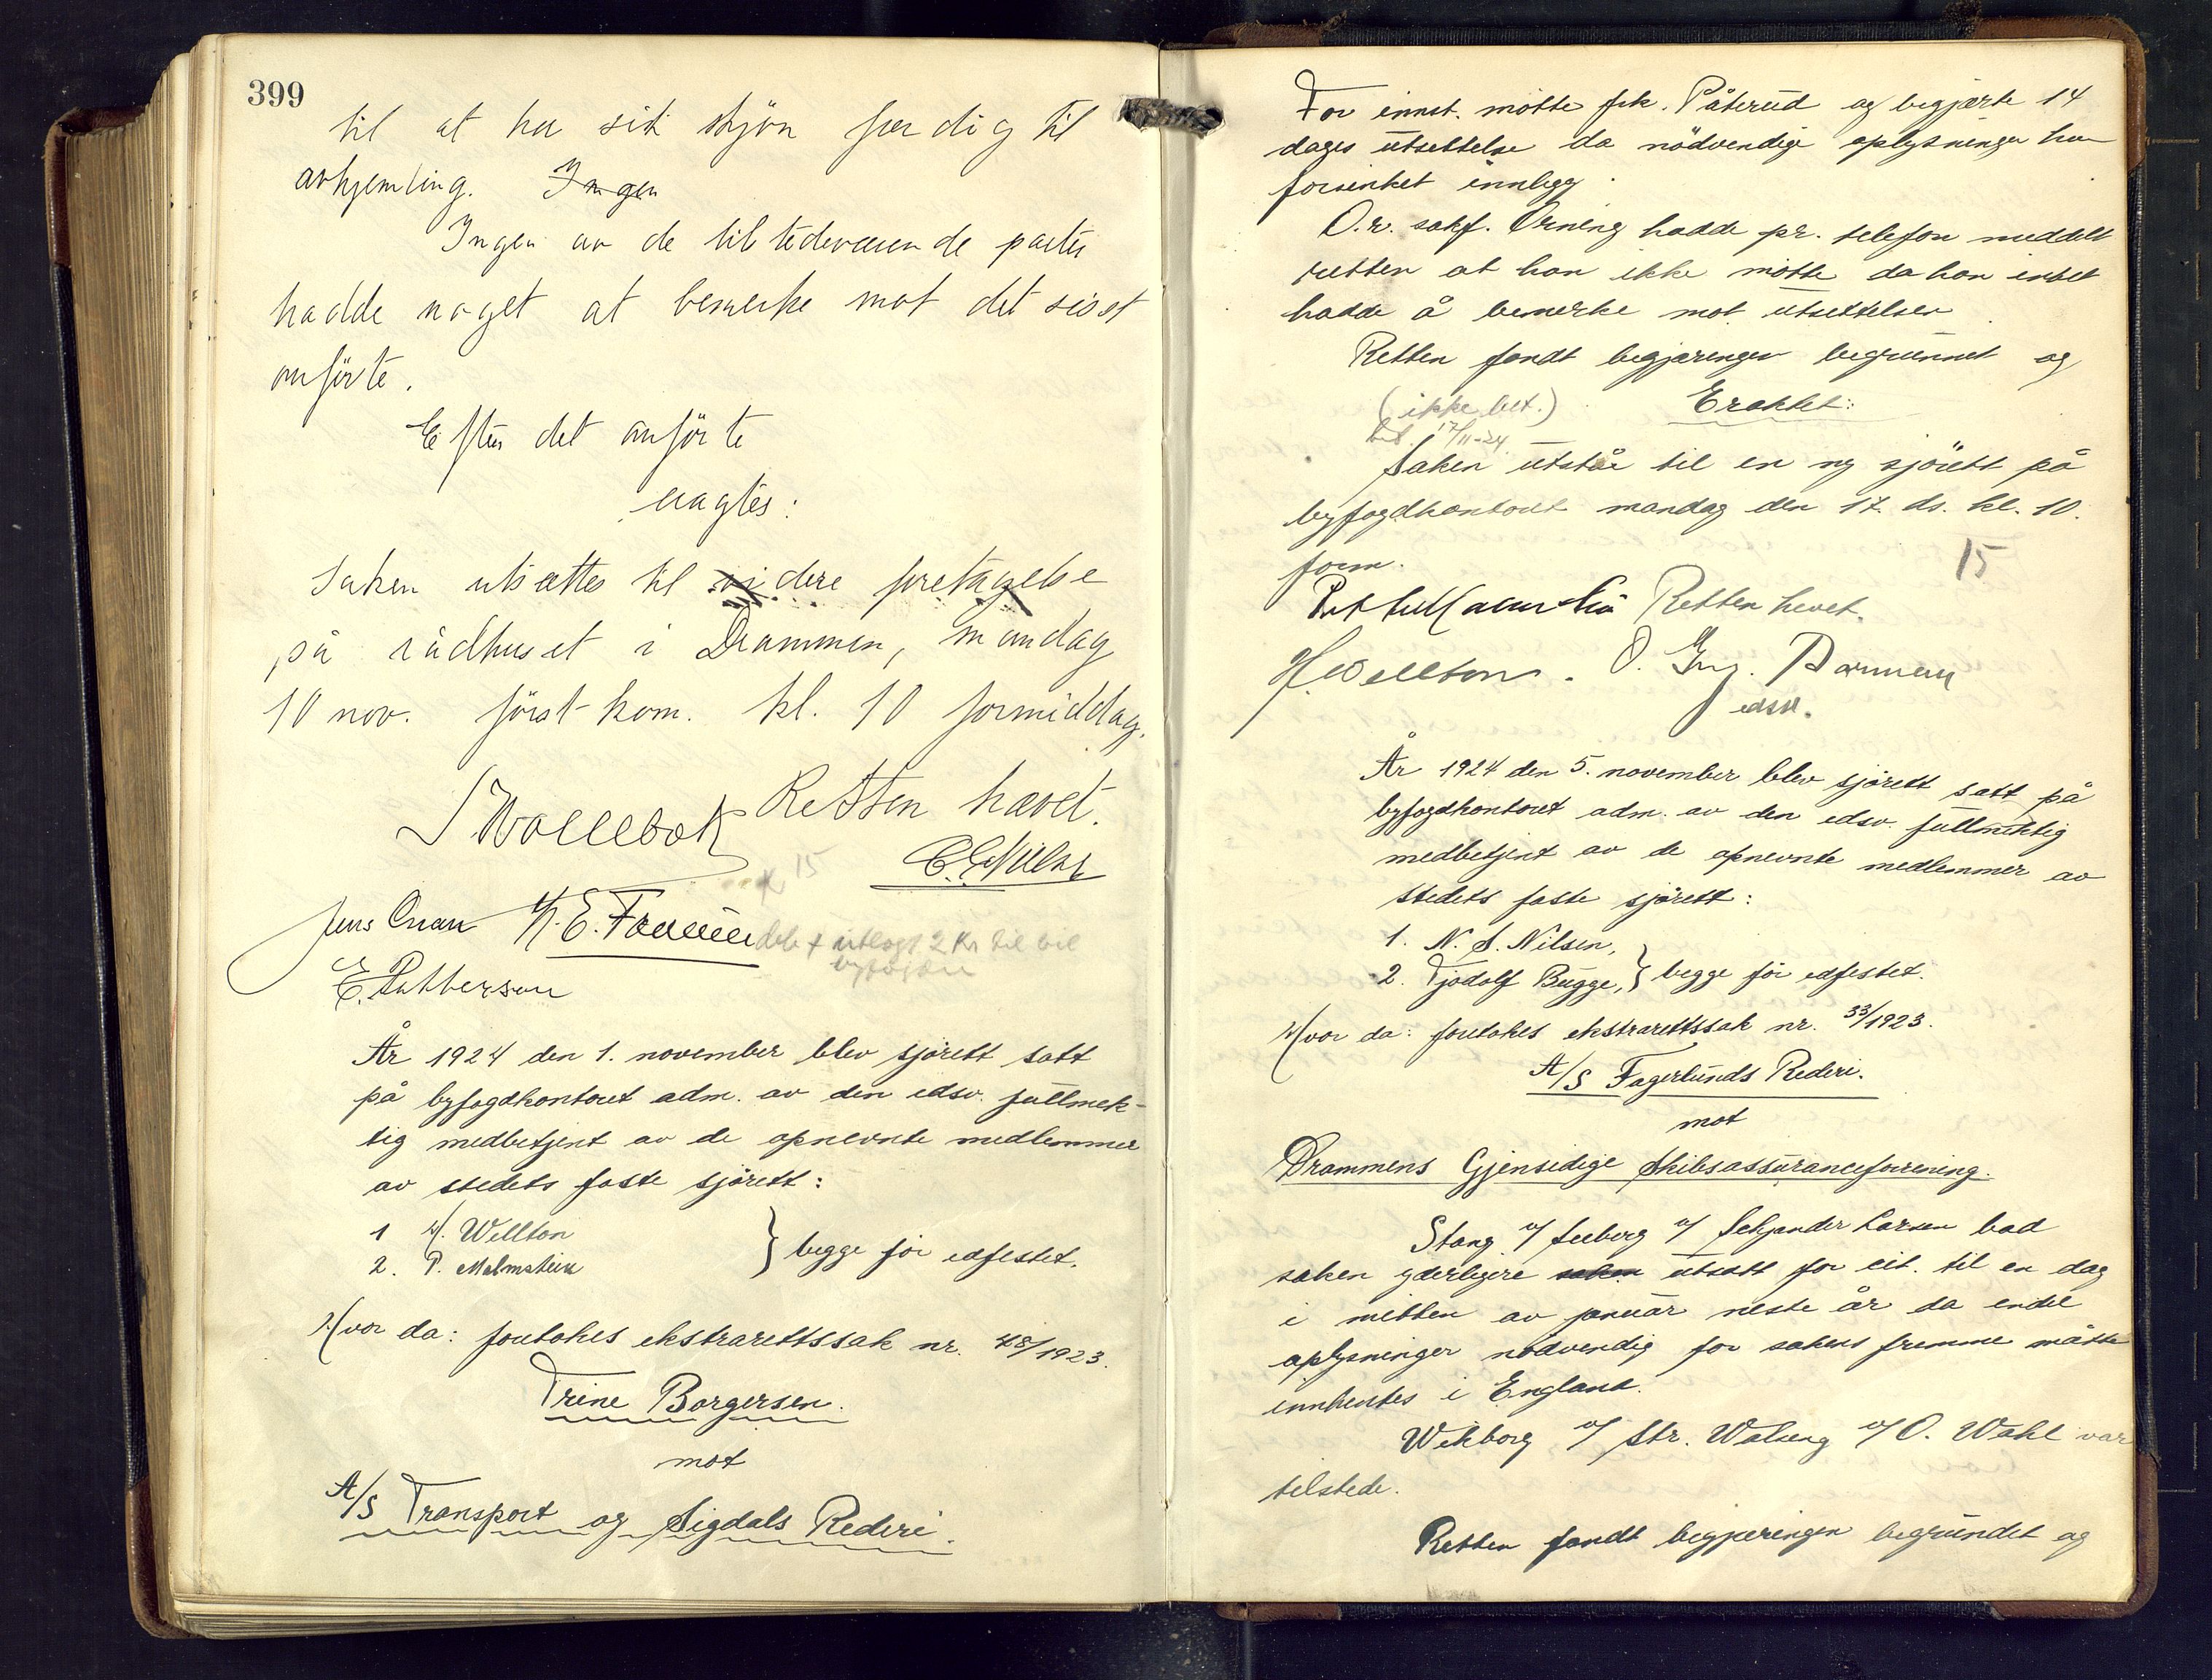 399
til at ha sit skjön færdig til
avhjemling. Ingen
Ingen av de tilstedeværende parter
hadde noget at bemerke mot det sisst
anförte.
Efter det anförte
vagtes:
Saken utsættes til videre foretagelse
på rådhuset i Drammen, mandag
10 nov. förstkom. kl. 10 formiddag.
Retten hævet.
E. Pettersen
År 1924 den 1. november blev sjörett satt
på byfogdkontoret adm. av den edsv. fullmek-
tig medbetjent av de opnevnte medlemmer
av stedets faste sjörett:
1 H. Wellton
2. P. Malmstein } begge för edfestet.
Hvor da: foretokes ekstrarettssak nr. 48/1923.
Trine Borgersen.
mot
A/S Transport og Sigdals Rederi.
For innst. mötte frk. Påterud og begjærte 14
dages utsettelse da nödvendige oplysninger har
forsinket innlegg.
O.r. sakf. Orning hadde pr. telefon meddelt
retten at han ikke mötte da han intet
hadde å bemerke mot utsettelsen
Retten fandt begjæringen begrunnet og
(ikke bet.) Eraktet:
bet. 17/11-24
Saken utstår til en ny sjörett på
byfogdkontoret mandag den 17. ds. kl. 10.
form.
15
Retten hevet.
H. Wellton.
edsv.
År 1924 den 5. november blev sjörett satt på
byfogdkontoret adm. av den edsv. fullmektig
medbetjent av de opnevnte medlemmer av
stedets faste sjörett:
1. N. S. Nilsen,
2. Tjodolf Bugge, } begge för edfestet.
Hvor da: foretokes ekstrarettssak nr. 33/1923.
A/S Fagerlunds Rederi.
mot
Drammens Gjensidige Skibsassuranceforening.
Stang v/ Seeberg v/ Schjander Larsen bad
saken yderligere saken utsatt for cit. til en dag
i mitten av januar neste år da endel
oplysninger nödvendig for sakens fremme måtte
innhentes i England.
Wikborg v/ Str. Walseng v/ O. Wahl var
tilstede.
Retten fandt begjæringen begrundet og